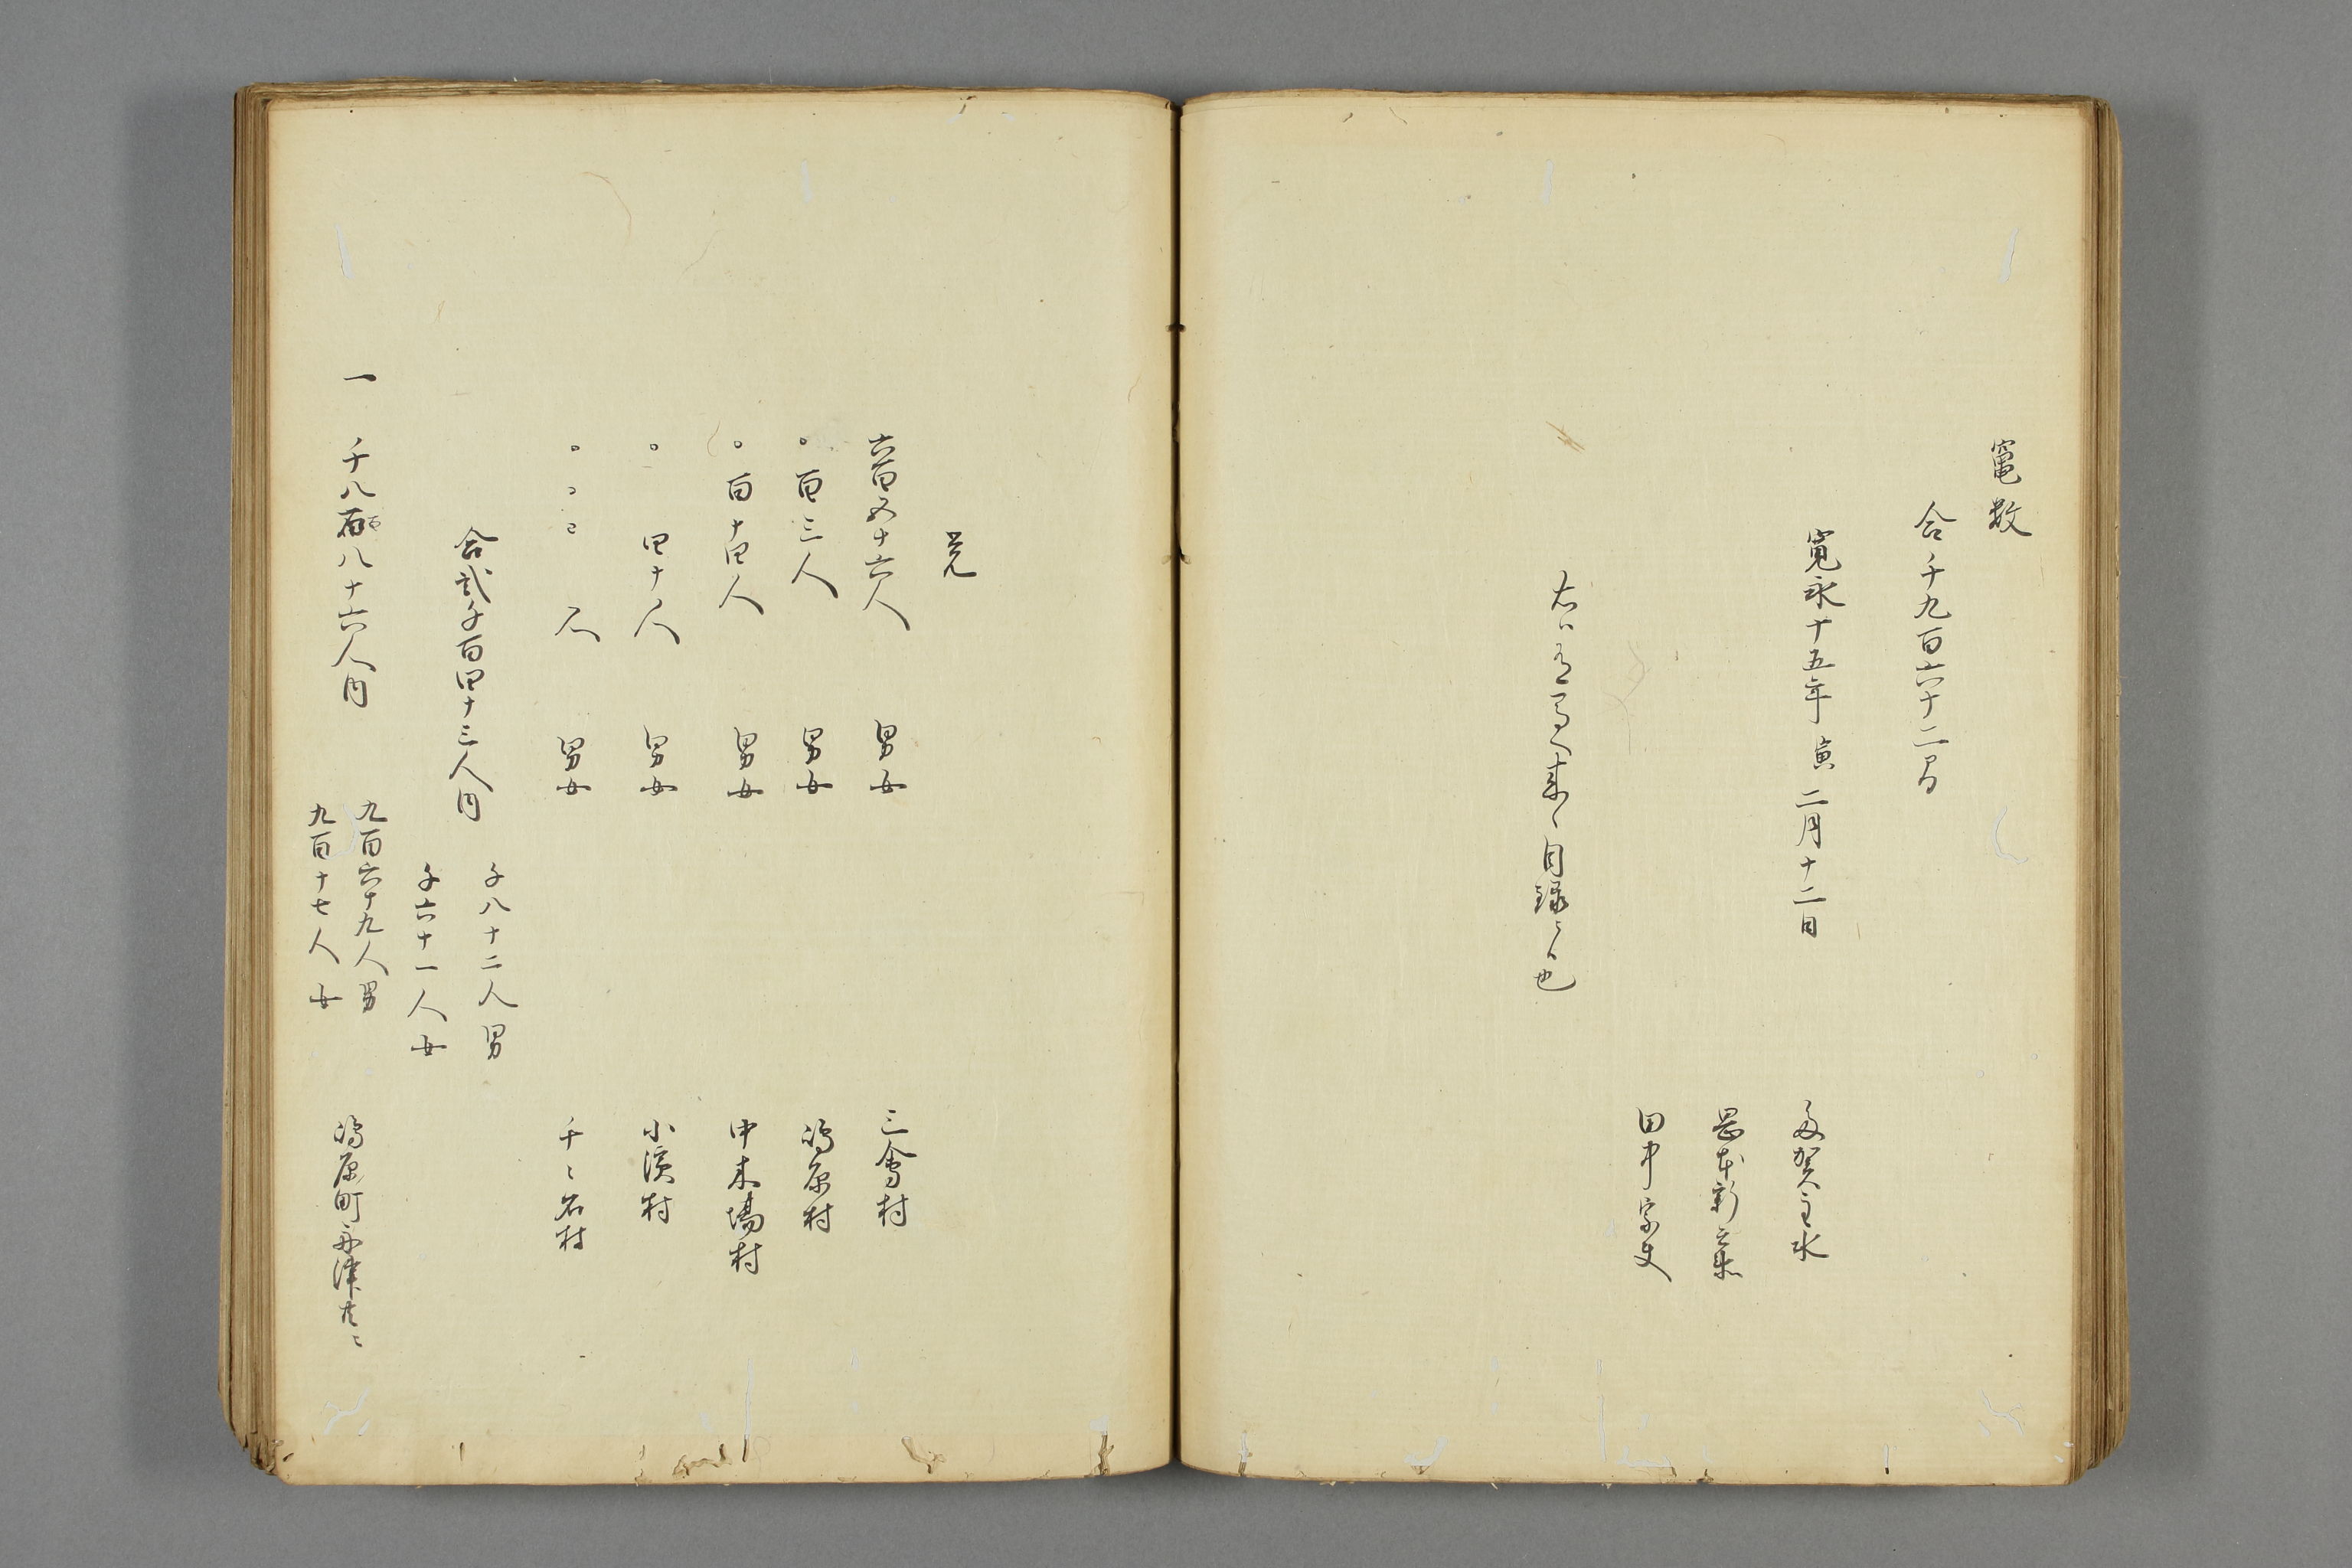 竃数
合千九百六十二間
寛永十五年寅二月十二日
多賀主水
岡本新兵衛
田中宗夫
右ハ
来ル目録之
也
覚
六百五十六人 男女 三會村
〃百三人 男女 嶋原村
〃百十四人 男女 中木場村
〃四十人 男女 小濱村
〃 人 男女 千々石村
合弐千百四十三人内
千八十二人 男
千六十一人 女
一 千八百八十六人内
九百六十九人 男
九百十七人 女
嶋原町舟津共ニ